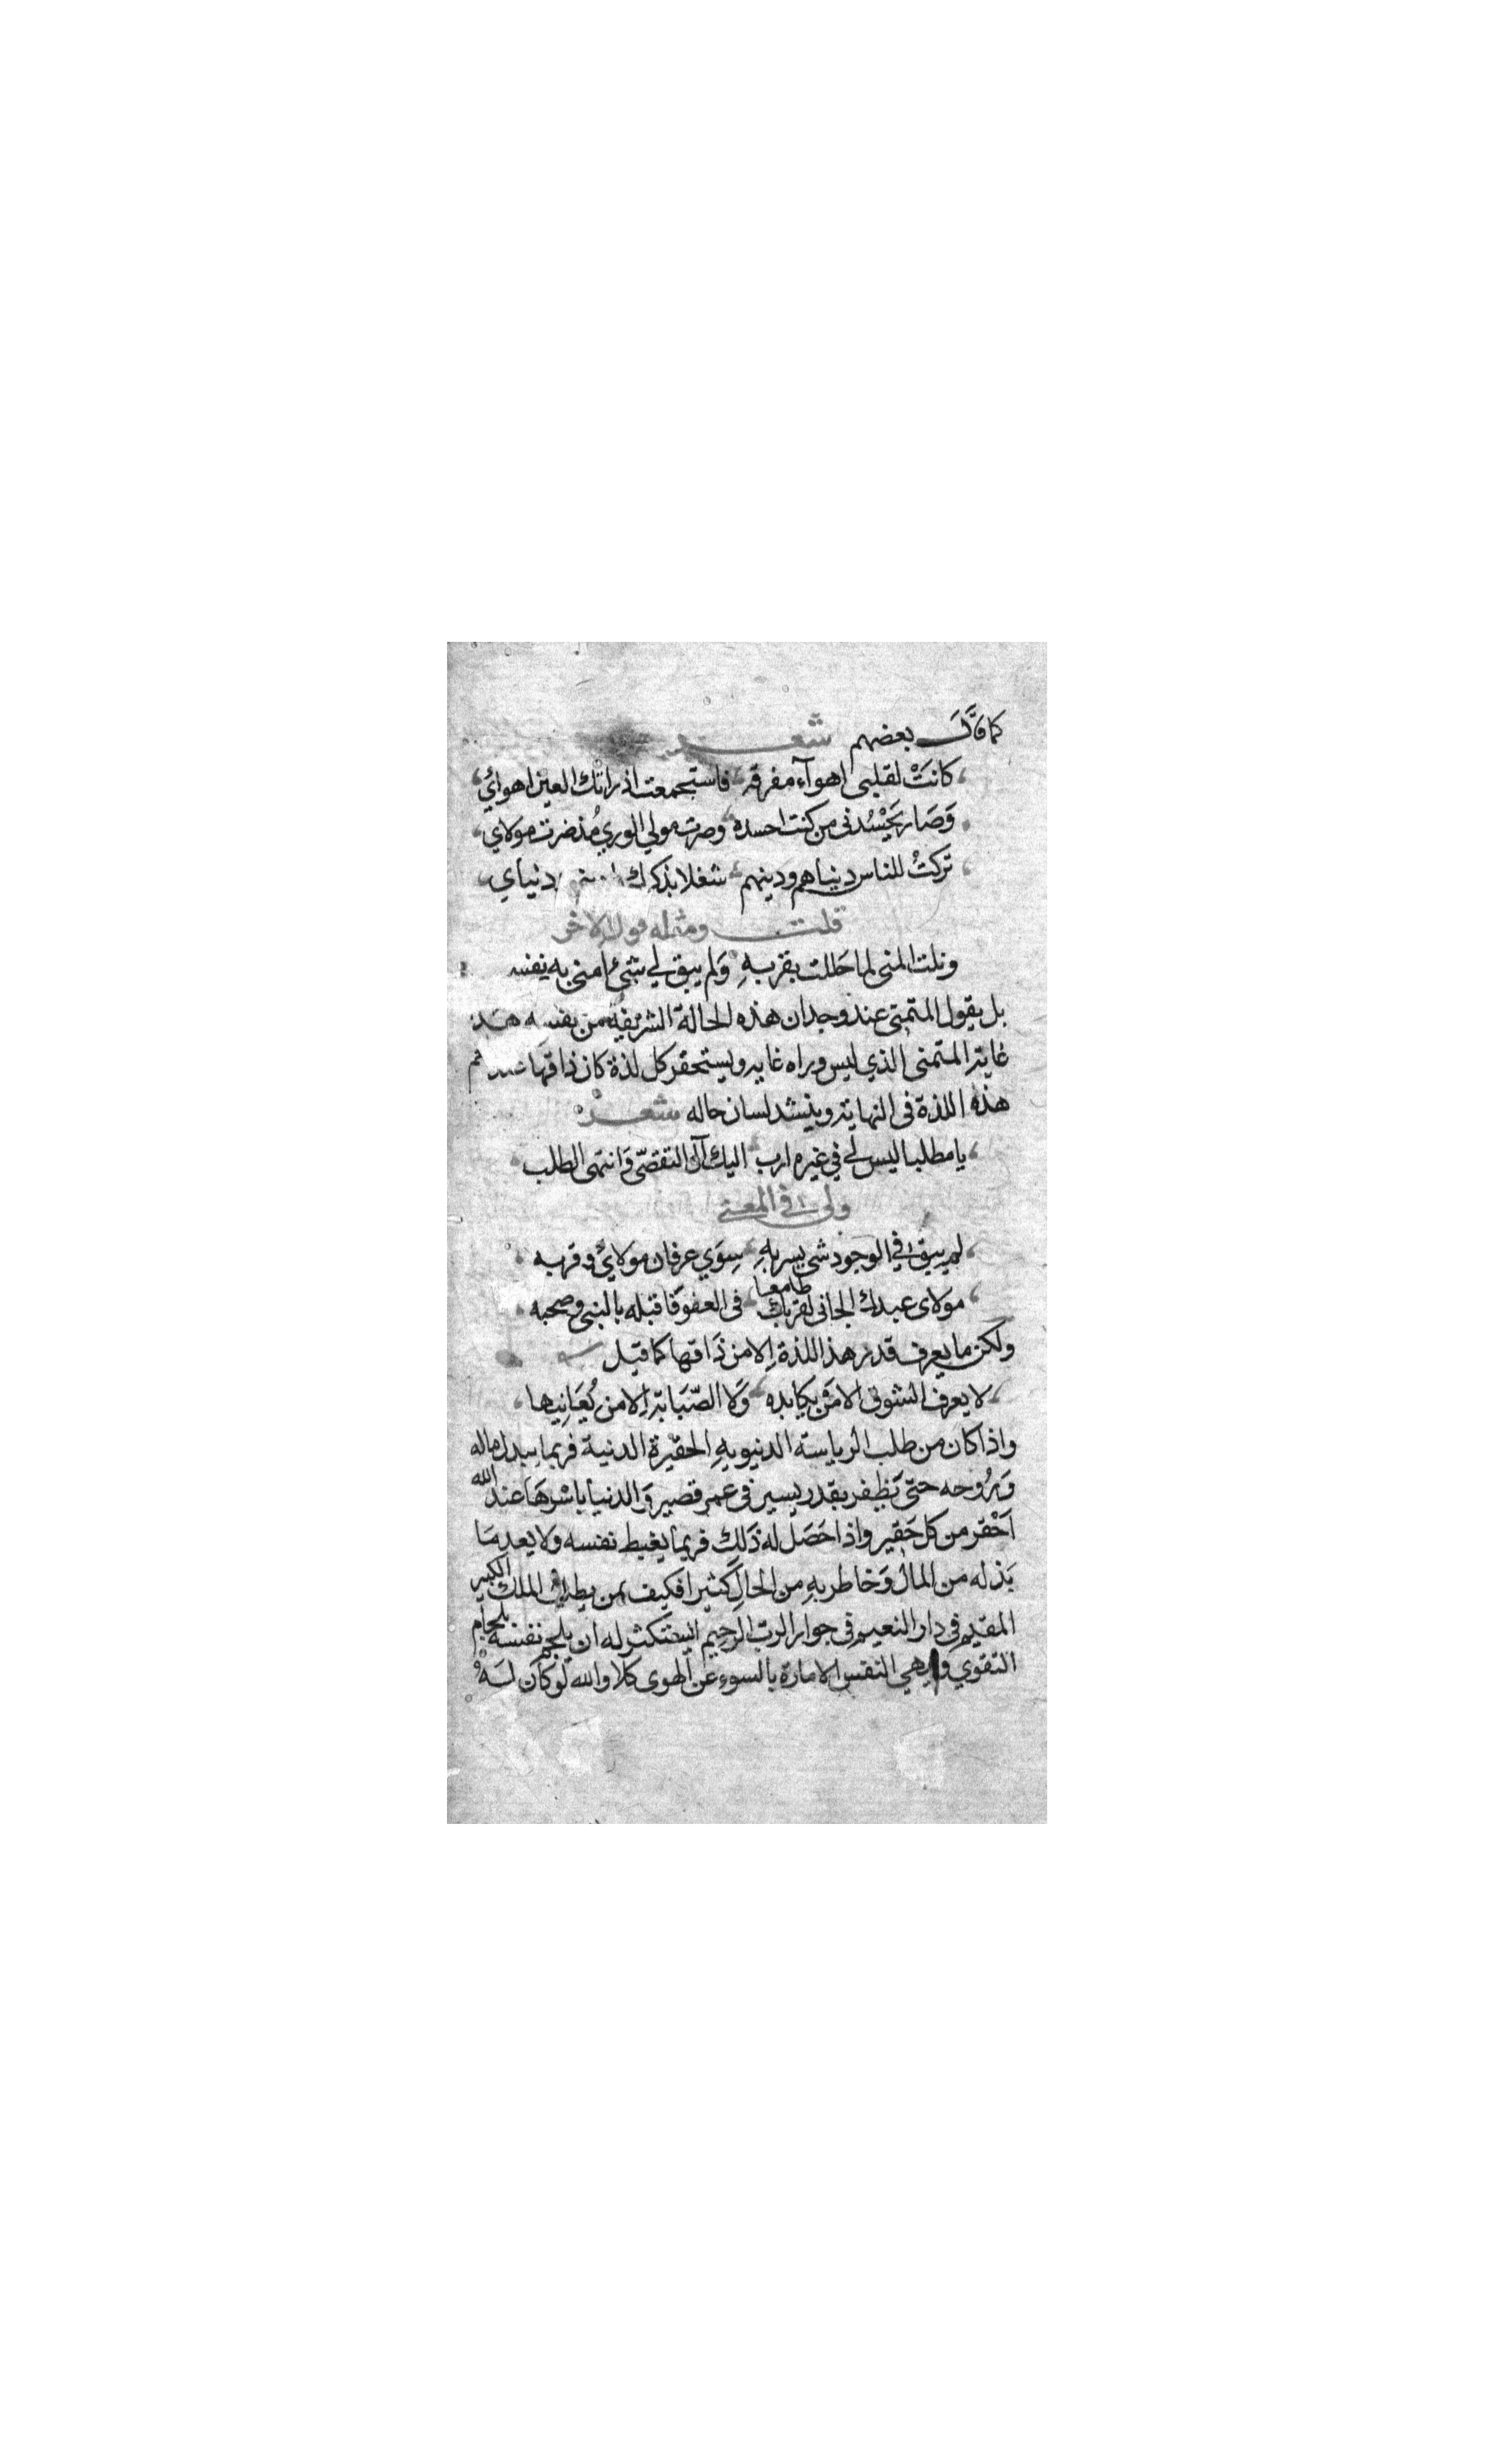 كما قَالَ بعضهم شعر
كانَتْ لقلبي اهوآء مفرقة فاستجمعت اذ راتك العين اهوائي
وَصَار يَحْسُدني من كنت احسده وصرت مولي الوري مُذ ضرت مولاي
تركتُ للناس دنياهم ودينهم شغلا بذكرك دنياي
قلت ومثله قول الاخر
ونلت المنى لما حَللت بقربهِ وَلم يبق لي شئ امنى به نفسي
بل يقول المتمني عند وجدان هذه الحالة الشريفة من نفسه هذا
غاية المتمنى الذي ليس وراه غايه ويستحقر كل لذة كان ذاقها
هذه اللذة في النهاية وينشد لسان حاله شعر
يا مطلبا ليس لي في غيره ارب اليك آل التقصّي وَانتهى الطلب
ولي في المعنى
لم يبق في الوجود شي يسر بهِ سِوَي عرفان مولائي وقربه
مولاى عبدك الجانى لقربك طامعا فى العفو فَاقبله بالنبي وصحبه
ولكن ما يعرف قدر هذا اللذة اِلا من ذَاقها كما قيل
لا يعرف الشوق الا مَن يكابده وَلا الصّبَابة اِلا من يُعَانِيها
واذا كان من طلب الرياسته الدنيويهِ الحقيرة الدنية فربما يبدل ماله
وَرُوحه حتى يَظفر بقدر يسير في عمر قصير وَالدنيا باسْرهَا عند الله
اَحْقر من كل حَقير واذا حَصَل له ذَلك فربما يغبط نفسه ولا يعد مَا
بَذله من المال وَخاطر بهِ من الحال كَثيرا فكيف بمن يطلب الملك الكبير
المقيم في دار النعيم في جوار الربّ الرّحِيم ايستكثر له ان يلجم نفسه بلجام
التقوي و هي النفس الامارة بالسوء عن الهوى كلا والله لو كان لَهْ